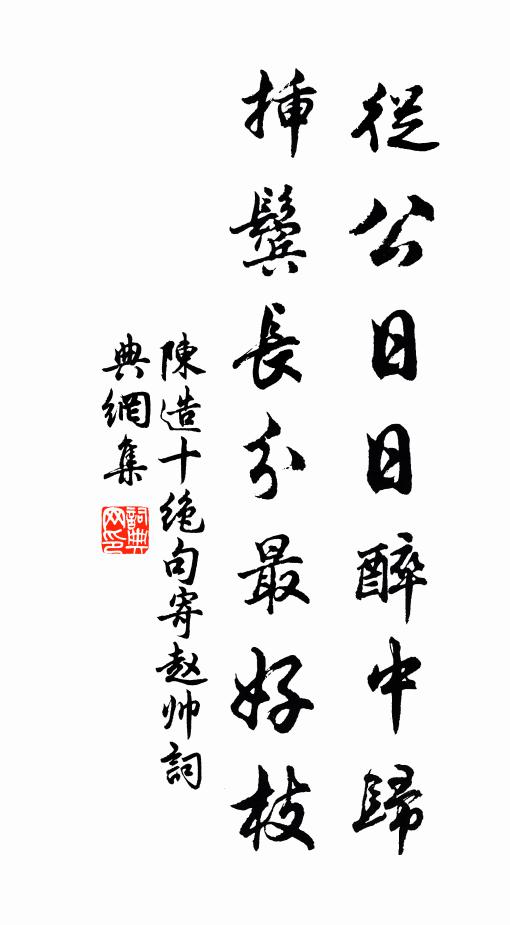 從公日日醉中歸
插鬓長分最好枝
陳造十绝句寄赵帅詞
典網集
詞典网印